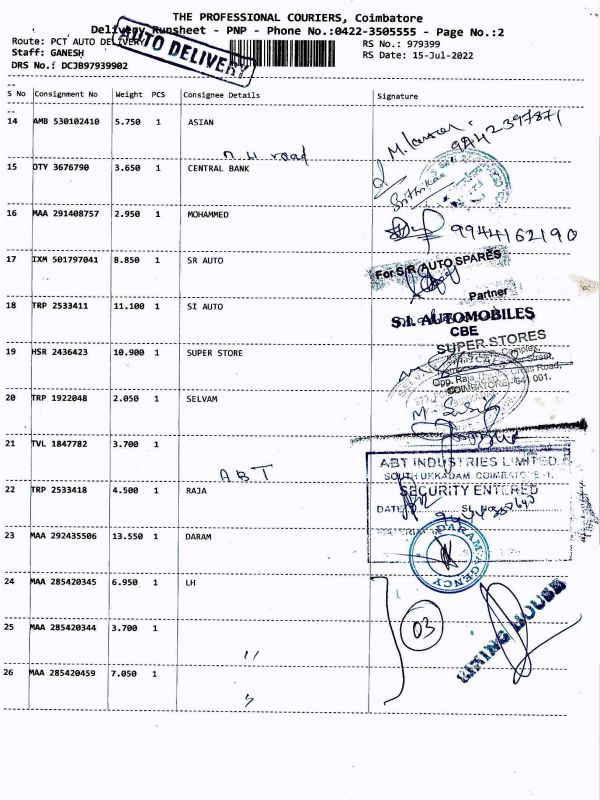 THE PROFESSIONAL COURIERS, Coimbatore
Delivery Runsheet - PNP - Phone No.:0422-3505555 - Page No.:2
Route: PCT AUTO DELIVERY
AUTO DELIVERY
RS No.: 979399
Staff: GANESH
RS Date: 15-Jul-2022
DRS No.: DCJB97939902
S No Consignment No Weight PCS Consignee Details Signature
14 AMB 530102410 5.750 1 ASIAN
9442397871
N H road
15 OTY 3676790 3.650 1 CENTRAL BANK
16 MAA 291408757 2.950 1 MOHAMMED
9944162190
17 IXM 501797041 8.850 1 SR AUTO
For S.R AUTO SPARES
Partner
18 TRP 2533411 11.100 1 SI AUTO
S.I. AUTOMOBILES
CBE
SUPER STORES
19 HSR 2436423 10.900 1 SUPER STORE
Complex,
Street,
Opp. Raja Cross Road,
COIMBATORE-641 001.
20 TRP 1922048 2.050 1 SELVAM
21 TVL 1847782 3.700 1
ABT
ABT INDUSTRIES LIMITED
SOUTH UKKADAM, COIMBATORE-1.
22 TRP 2533418 4.500 1 RAJA
SECURITY ENTERED
DATE SL. No.
23 MAA 292435506 13.550 1 DARAM
DARAM AGENCY
24 MAA 285420345 6.950 1 LH
03
LIXING HOUSE
25 MAA 285420344 3.700 1
"
26 MAA 285420459 7.050 1